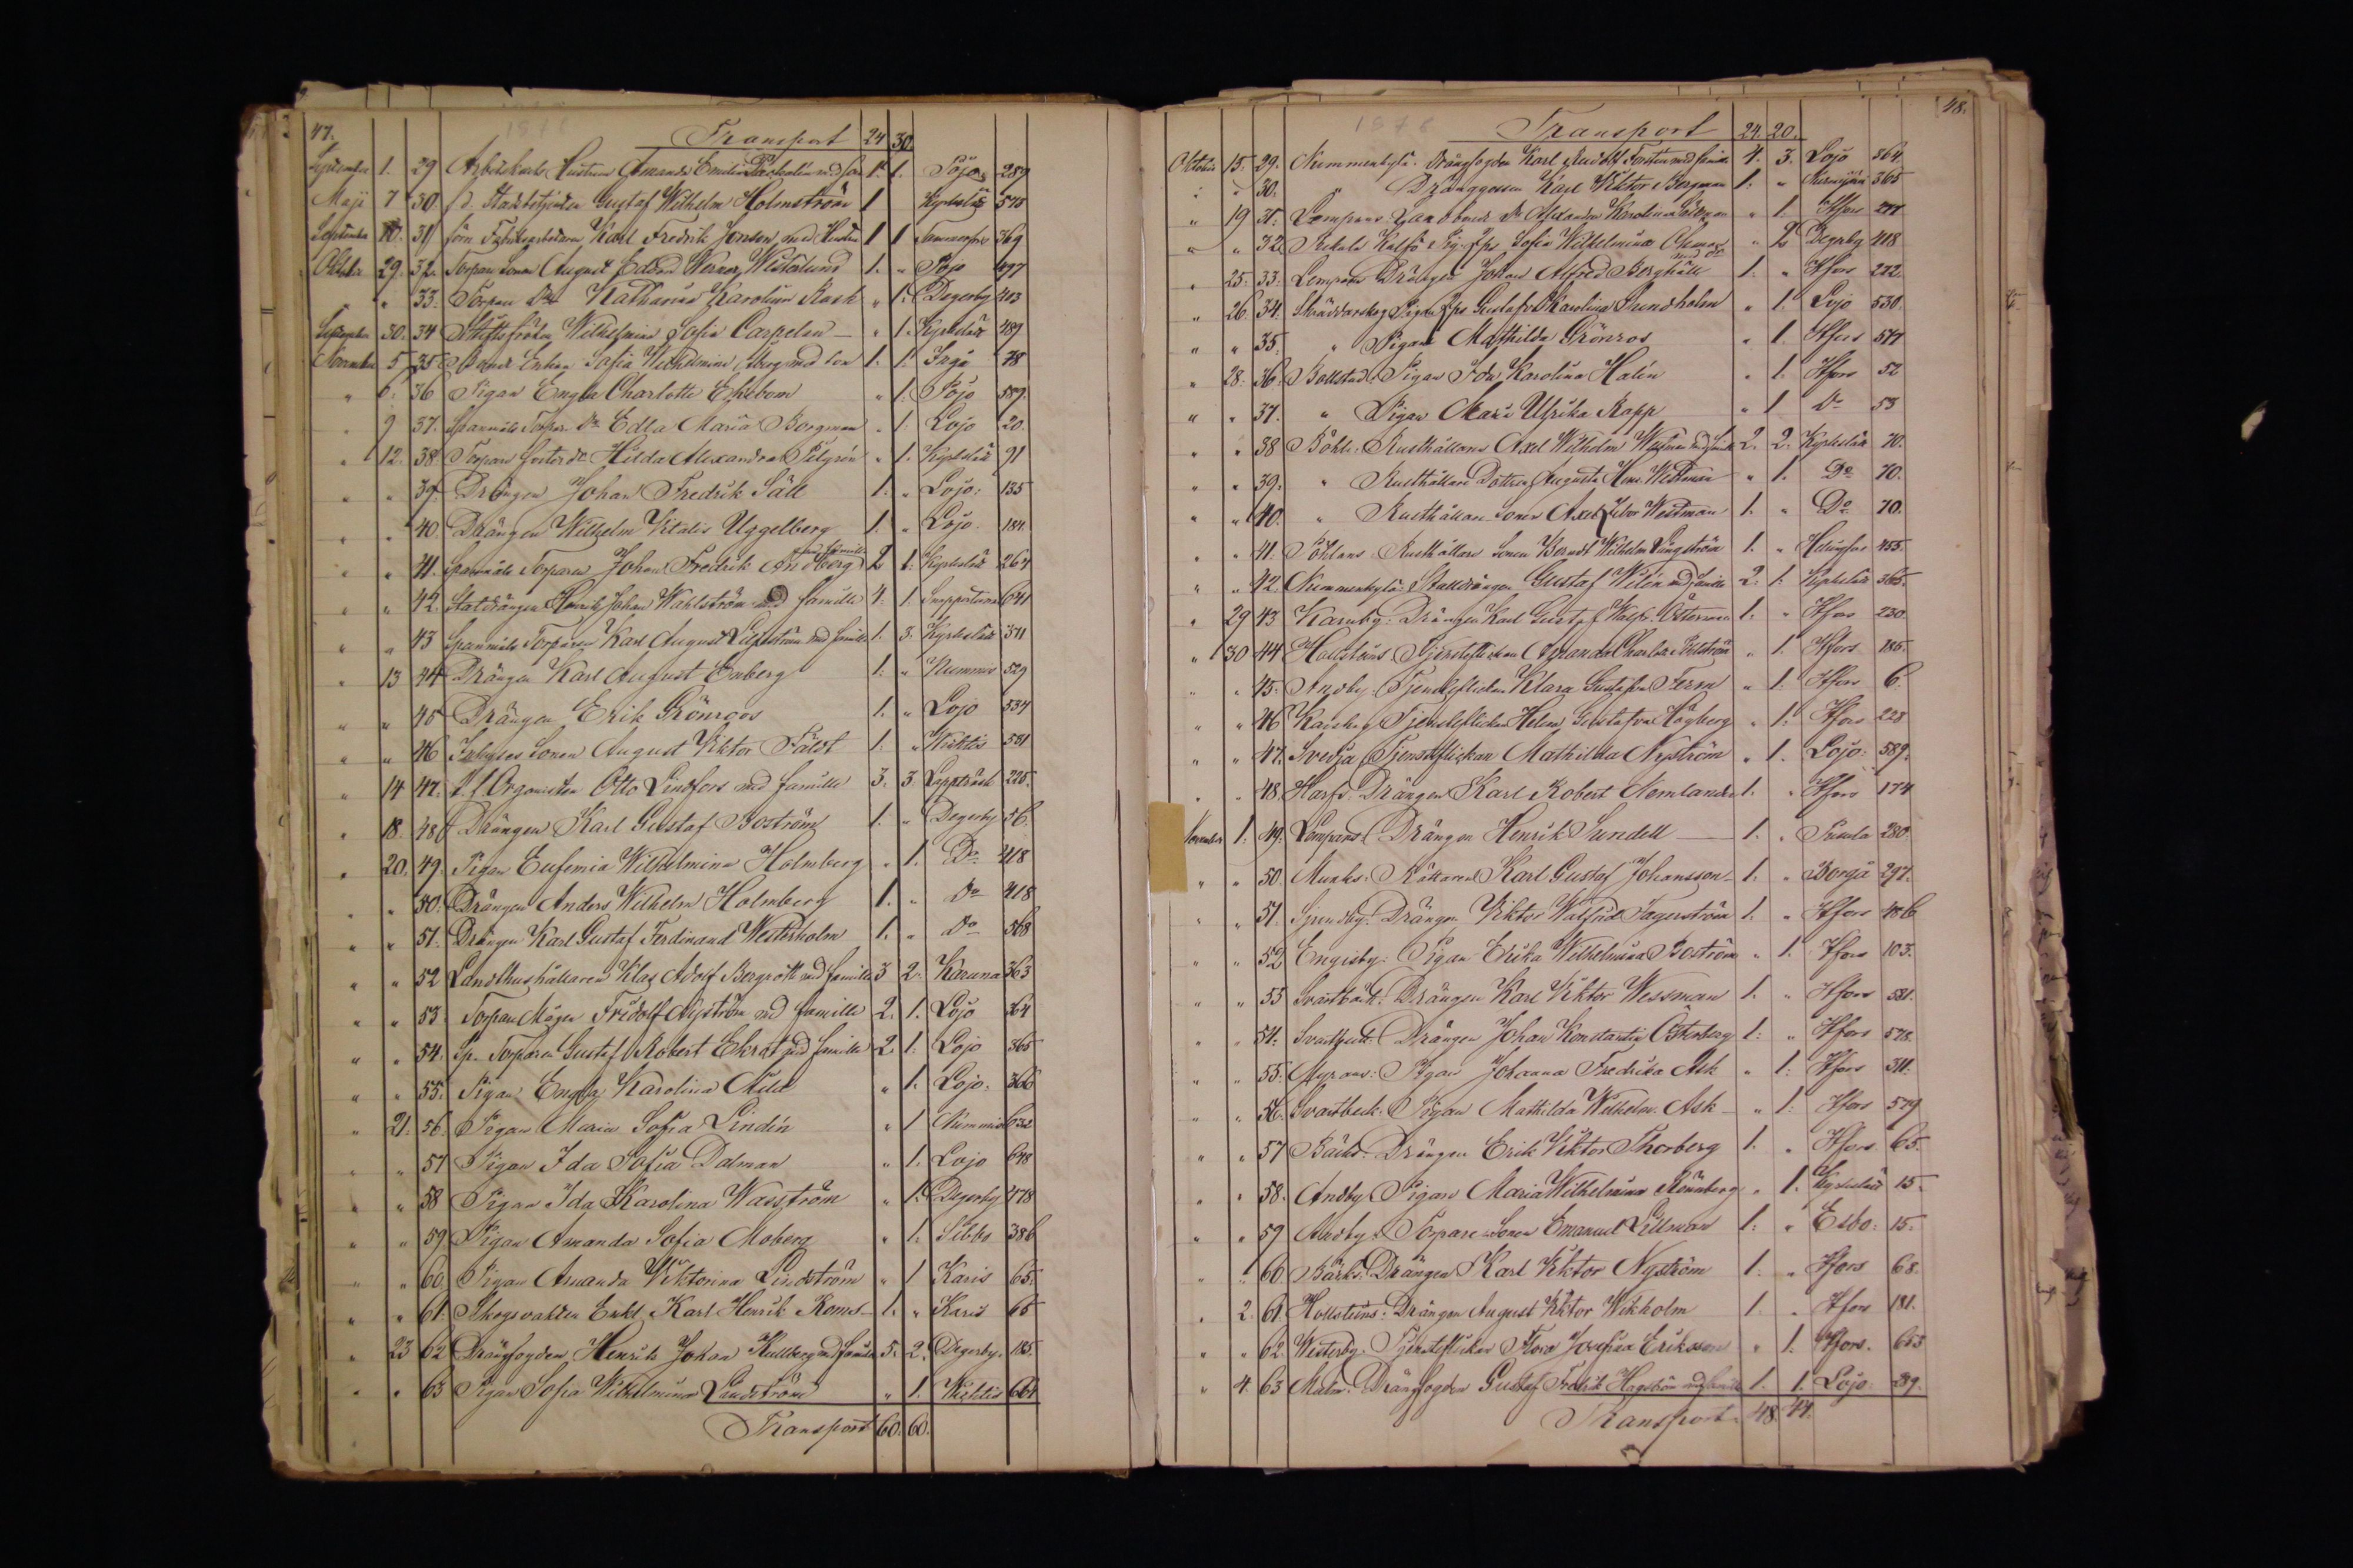 47.
1876
Transport 24 30.
September 1. 29 Arbetskarls Hustrun Amanda Emilia med son 1. 1. Pojo 289
Maji 7 30 f.d. Stadsbetjenten Gustaf Wilhelm Holmström 1 Kyrkslät 548
September 10. 31 förra Fabriksarbetaren Karl Fredrik Jonson med Hustru 1 1 Tammerfors 369
Oktober 29. 32. Torpare Sonen August Edvard Werner Westerlund 1. " Pojo 497
" " 33. Torpare Dr Katharina Karolina Rask " 1. Degerby 403
September 30. 34 Stiftsfröken Wilhelmina Sofia Carpelan — " 1. Kyrkslät 489
November 5 35 Enkan Sofia Wilhelmina Åberg med son 1. 1. Ingå 78
" 6. 36 Pigan Engla Charlotta Ekebom " 1. Pojo 589.
" 9 37. Spanmåls Torpar. Dr Edla Maria Borgman " 1. Lojo 20.
" 12. 38. Torpare foster dr Hilda Alexandra Pilgrén " 1. Kyrkslät 91
" " 39. Drängen Johan Fredrik Säll 1. " Lojo. 135
" " 40. Drängen Wilhelm Vitalis Uggelberg 1. " Lojo. 184.
" " 41. Spanmåls Torparen Johan Fredrik Andberg med familie 2 1. Kyrkslät 264
" " 42. Statdrängen Henrik Johan Wahlström med familie 4. 1. 641
" " 43 Spanmåls Torparen Karl August Liljeström med familie 1. 3. Kyrkslät 311
" 13 44 Drängen Karl August Enberg 1. " Nummis 529
" " 45 Drängen Erik Grönroos 1. " Lojo 534
" " 46 Inhyses Sonen August Viktor Fäldt 1. " Wichtis 581
" 14 47. t.f. Organisten Otto Lindfors med familie 3. 3. Lappträsk 225.
" 18. 48 Drängen Karl Gustaf Boström 1. " Degerby 56.
" 20. 49. Pigan Eufemia Wilhelmina Holmberg " 1. Do 418
" " 50. Drängen Anders Wilhelm Holmberg 1. " Do 418
" " 51. Drängen Karl Gustaf Ferdinand Westerholm 1. " Do 568
" " 52 Landthushållaren Klas Adolf Bergroth med familie 3 2. Karuna 363
" " 53. Torpare Mågen Fridolf Nyström med familie 2. 1. Lojo 364
" " 54. Sp. Torparen Gustaf Robert Ekrot med familie 2. 1. Lojo 365
" " 55. Pigan Engla Karolina " 1. Lojo. 366
" 21. 56. Pigan Maria Sofia Lindén " 1 Nummis 632
" " 57 Pigan Ida Sofia Dalman " 1. Lojo 648
" " 58 Pigan Ida Karolina Wasström " 1. Degerby 478
" " 59 Pigan Amanda Sofia Moberg " 1. Sibbo 386
" " 60. Pigan Amanda Viktorina Lindström " 1 Karis 65.
" " 61. Skogsvakten Enkl. Karl Henrik Roms — 1. " Karis 65
" 23 62 Drängfogden Henrik Johan Kullberg med familie 5. 2. Degerby. 185.
" " 63 Pigan Sofia Wilhelmina Lindström " 1. Wichtis 664
Transport 60. 60.
48.
1876
Transport 24. 20.
Oktober 15. 29. Nummenkylä. Drängfogden Karl Rudolf Forsten med familie 4. 3. Lojo 364
" " 30. " Dränggossen Karl Viktor Bergman 1. " Nurmijärvi 365
" 19 31. Lempans Dr Alexandra Karolina " 1. Hfors
" " 32. Kalfö Pig. Sofia Wilhelmina med dr " 2 Degerby 418
" 25. 33. Lempans Drängen Johan Alfred Berghäll 1. " Hfors 222.
" 26. 34. Skräddarskog Pigan Ips Gustafva Karolina Sundholm " 1. Lojo 530.
" " 35. " Pigan Mathilda Grönros " 1. Hfors 544
" 28. 36. Bollstad. Pigan Ida Karolina Halin " 1. Hfors 52
" " 37. " Pigan Maria Ulrika Rapp " 1 Do 53
" " 38 Böhle. Rusthållaren Axel Wilhelm Westman med familie 2. 2. Kyrkslät 70.
" " 39. " Rusthållare Dottren Augusta Westman " 1. Do 70.
" " 40. " Rusthållare Sonen Axel Westman 1. " Do 70.
" " 41. Rusthållare Sonen Berndt Wilhelm Ljungström 1. " Helsingfors 455.
" " 42. Nummenkylä. Stalldrängen Gustaf Wilén med familie 2. 1. Kyrkslät 365.
" 29 43 Karuby. Drängen Karl Gustaf Walfr. Österman 1. " Hfors 230.
" 30 44 Hollsteins Tjensteflickan Amanda Charlotta " 1. Hfors 185.
" " 45. Andby. Tjensteflickan Klara Gustafva Ferm " 1. Hfors 6.
" " 46 Tjensteflickan Helena Gustafva Högberg " 1. Hfors 228
" " 47. Svedja Tjensteflickan Mathilda Nyström " 1. Lojo. 589.
" " 48. Harfs. Drängen Karl Robert Nemlander 1. " Hfors 174
November 1. 49. Lempans. Drängen Henrik Sundell — 1. " 280.
" " 50. Munks. Rättaren Karl Gustaf Johansson — 1. " Borgå 297.
" " 51. Sjundby. Drängen Viktor Walfrid Fagerström 1. " Hfors 486
" " 52 Engisby. Pigan Erika Wilhelmina Boström " 1. Hfors 103.
" " 53 Svartbäck. Drängen Karl Viktor Wessman 1. " Hfors 581.
" " 54. Svartbäck. Drängen Johan Konstantin Österberg 1. " Hfors 578.
" " 55. Myrans. Pigan Johanna Fredrika Ask " 1. Hfors 311.
" " 56. Svartbeck. Pigan Mathilda Wilhelm. Ask — " 1. Hfors 579
" " 57 Bäcks. Drängen Erik Viktor Thorberg 1. " Hfors 65.
" " 58. Andby. Pigan Maria Wilhelmina Rönnberg " 1. Kyrkslät 15.
" " 59 Andby. Torpare Sonen Emanuel Lillman 1. " Esbo. 15.
" " 60 Bäcks. Drängen Karl Viktor Nyström 1. " Hfors 68
" 2. 61. Hollsteins. Drängen August Viktor Wikholm 1. " Hfors 181.
" " 62. Westerby. Tjensteflickan Flora Josefina Eriksson " 1. Hfors. 653
" 4. 63 Malm. Drängfogden Gustaf Fredrik Hagström med familie 1. 1. Lojo 289.
Transport 48. 44.